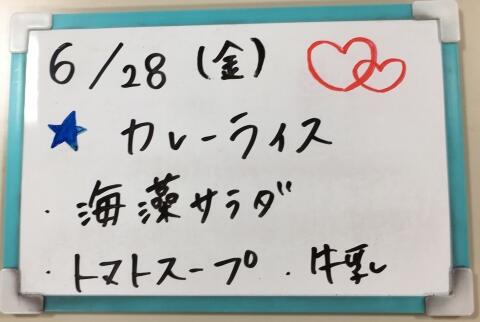 6/28(金)
カレーライス
・海藻サラダ
・トマトスープ ・牛乳